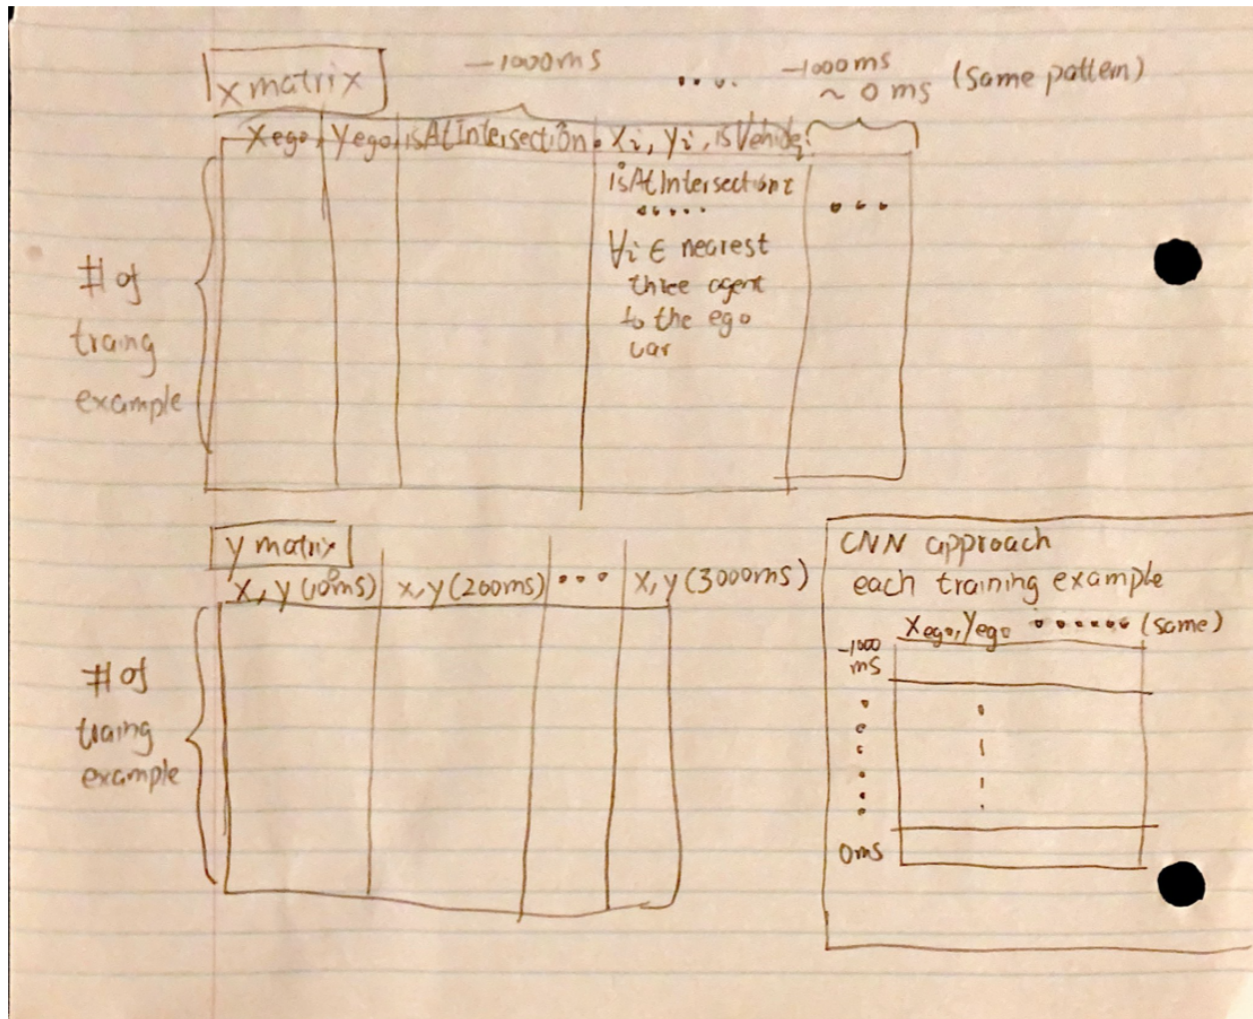 X matrix
-1000ms
....
-1000ms
~ 0 ms (same pattern)
Xego, Yego, isAtIntersection. Xi, Yi, isVehicle:
isAtIntersection:
.....
∀i ∈ nearest
three agent
to the ego
car
...
# of
traing
example
y matrix
X, y (100ms) x, y (200ms) ... x, y (3000ms)
# of
traing
example
CNN approach
each training example
Xego, Yego ...... (same)
-1000
ms
0ms